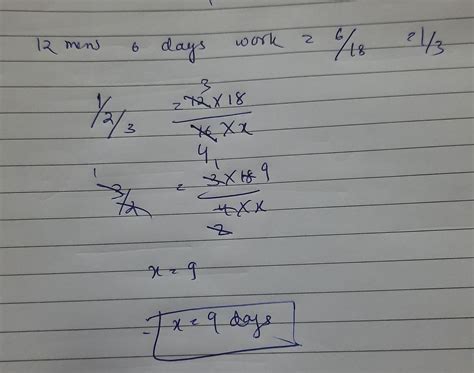 12 mens 6 days work = 6/18 = 1/3
3
1/2/3 = 12 × 18
16 × x
4 1
1 3/2 = 3 × 18 9
4 × x
2
x = 9
x = 9 days